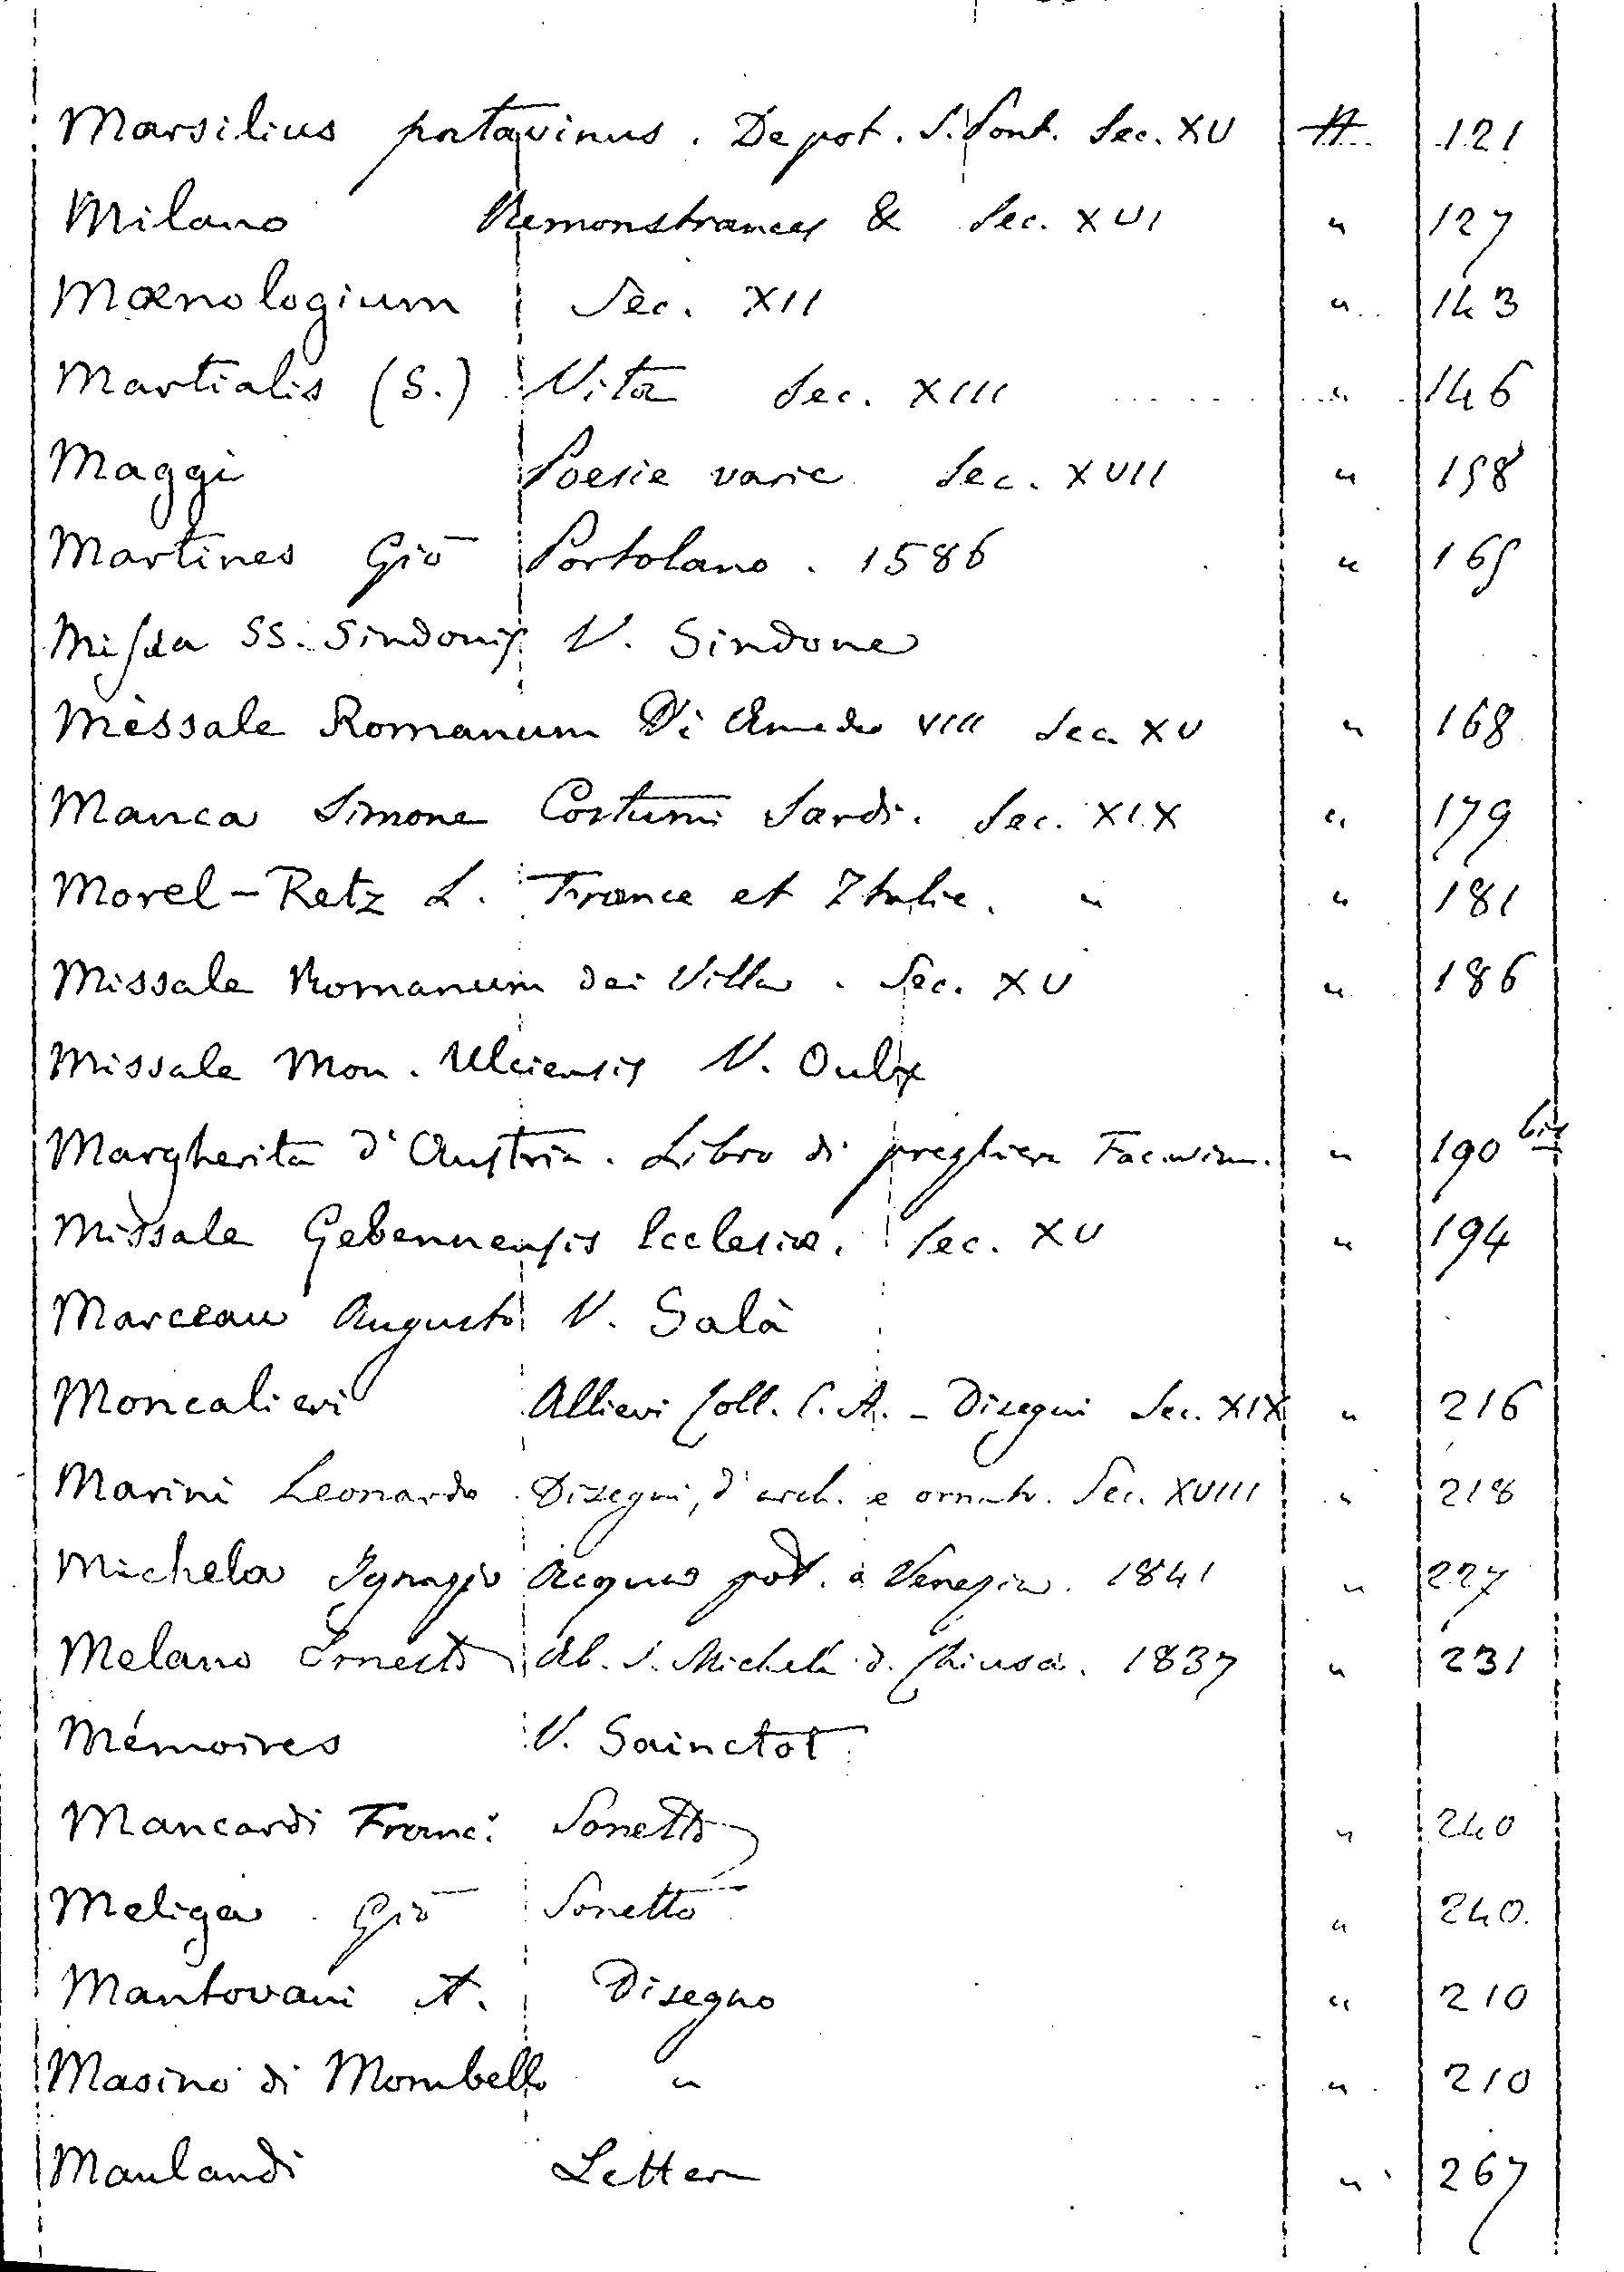 Marsilius patavinus. De pot. S. Pont. Sec. XV # 121
Milano Remonstrances & Sec. XVI " 127
Mœnologium Sec. XII " 143
Martialis (S.) Vita Sec. XIII " 146
Maggi Poesie varie Sec. XVII " 158
Martines Giō Portolano. 1586 " 165
Missa SS. Sindonis V. Sindone
Messale Romanum Di Amedeo VIII Sec. XV " 168
Manca Simone Costumi Sardi. Sec. XIX " 179
Morel-Retz L. France et Italie. " " 181
Missale Romanum dei Villa. Sec. XV " 186
Missale Mon. Ulciensis V. Oulx
Margherita d'Austria. Libro di preghiera Facsim. " 190 bis
Missale Gebennensis Ecclesiæ. Sec. XV " 194
Marceau Augusto V. Salà
Moncalieri Allievi Coll. C. A. - Disegni Sec. XIX " 216
Marini Leonardo Disegni, d'arch. e ornato. Sec. XVIII " 218
Michela Ignazio Acqua pot. a Venezia. 1841 " 227
Melano Ernesto Ab. S. Michele d. Chiusa. 1837 " 231
Mémoires V. Sainctot
Mancardi Franc. Sonetto " 240
Meliga Giō Sonetto " 240.
Mantovani A. Disegno " 210
Masino di Mombello " " 210
Maulandi Lettera " 267